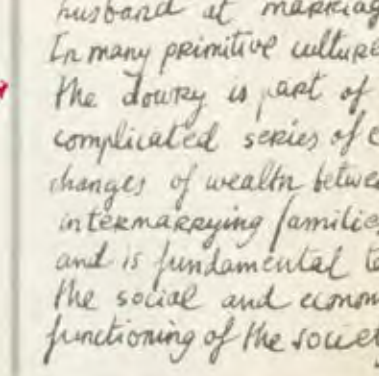 husband at marriag
In many primitive culture
the dowry is part of
complicated series of e
changes of wealth betwe
intermarrying families
and is fundamental to
the social and econom
functioning of the societ